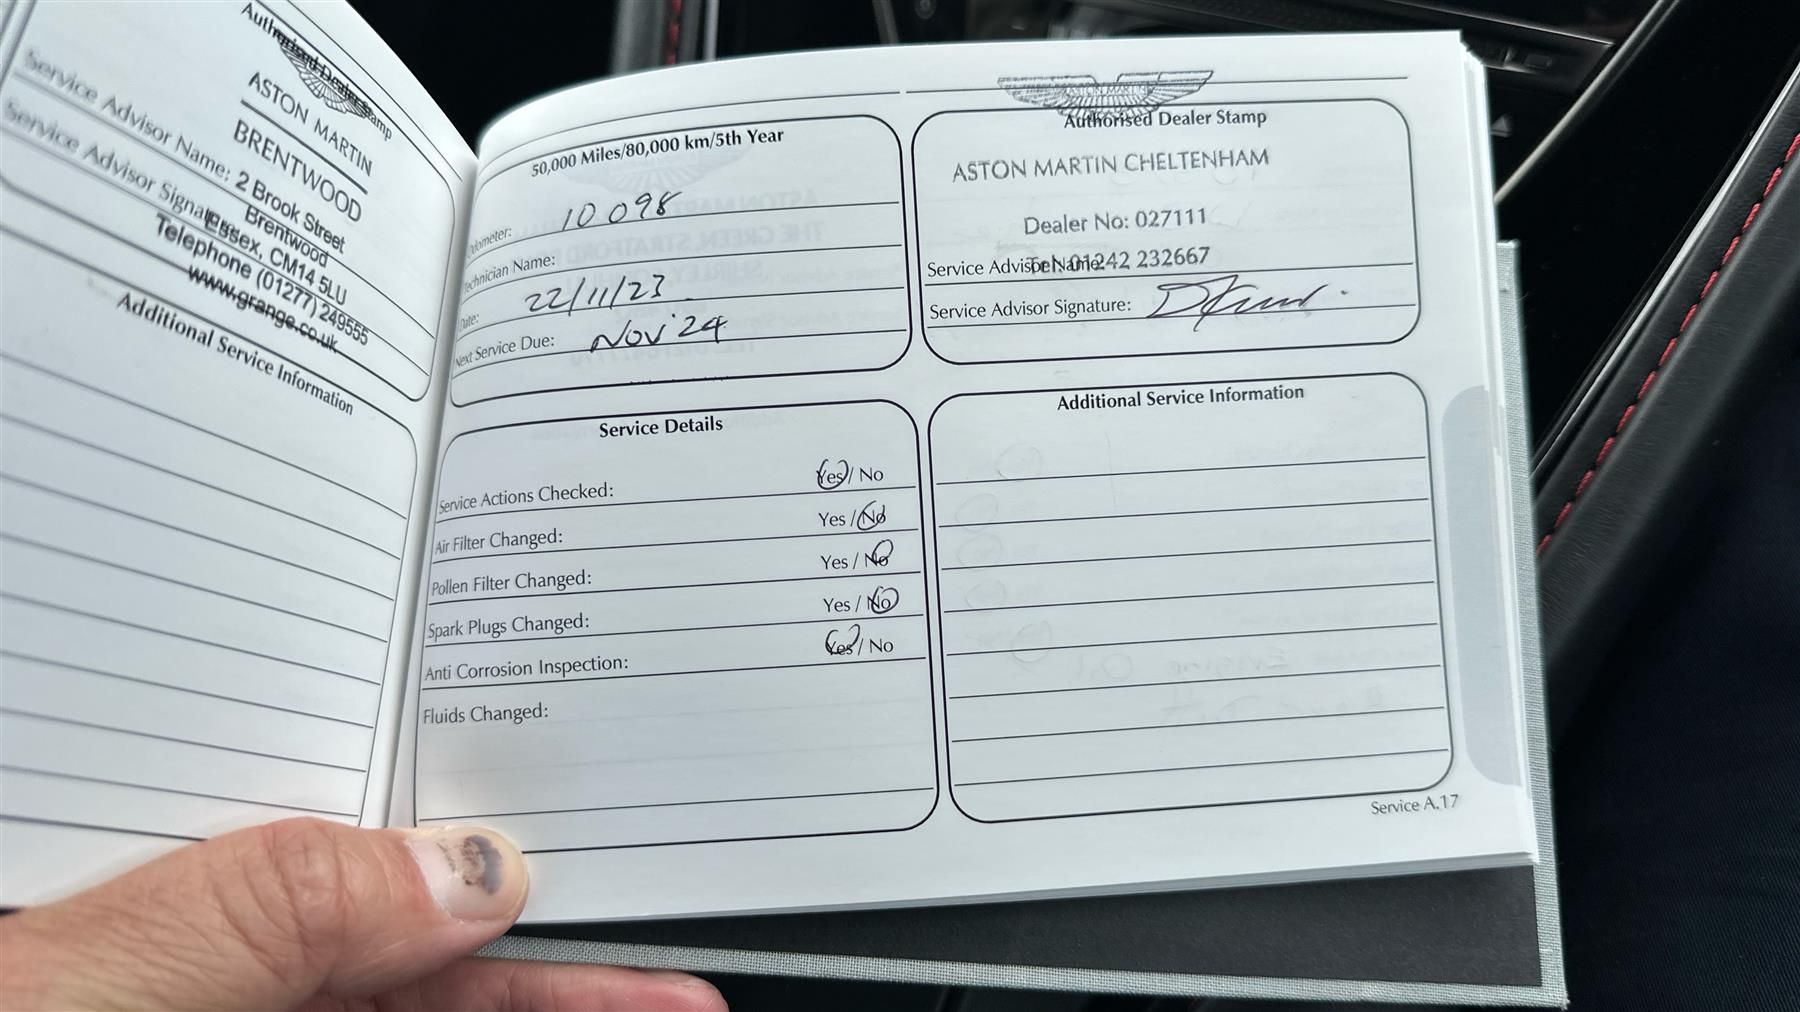 Authorised Dealer Stamp
ASTON MARTIN
BRENTWOOD
Service Advisor Name: 2 Brook Street
Brentwood
Service Advisor Signature:
Essex, CM14 5LU
Telephone (01277) 249555
www.grange.co.uk
Additional Service Information
50,000 Miles/80,000 km/5th Year
Odometer: 10 098
Technician Name:
Date: 22/11/23
Next Service Due: Nov '24
ASTON MARTIN
Authorised Dealer Stamp
ASTON MARTIN CHELTENHAM
Dealer No: 027111
Service Advisor Name:
Tel: 01242 232667
Service Advisor Signature:
Service Details
Service Actions Checked: Yes / No
Air Filter Changed: Yes / No
Pollen Filter Changed: Yes / No
Spark Plugs Changed: Yes / No
Anti Corrosion Inspection: Yes / No
Fluids Changed:
Additional Service Information
Service A.17